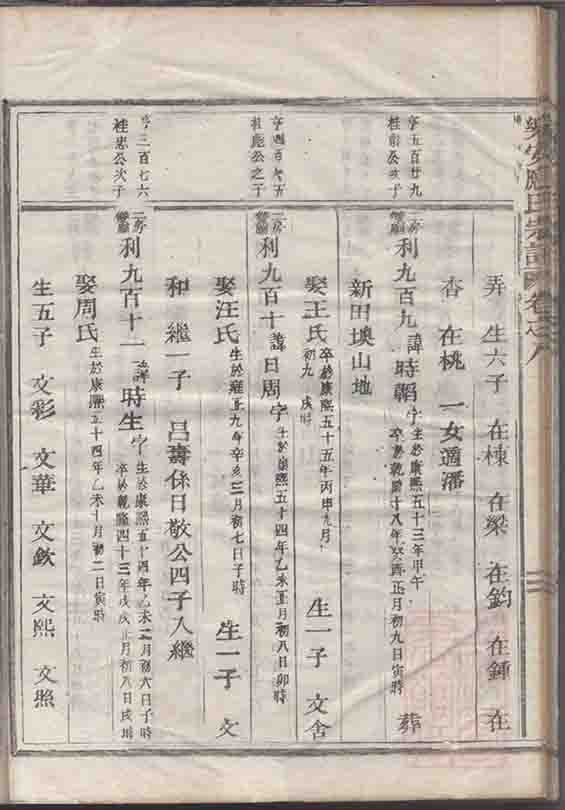 樂安 氏宗譜 卷之八
弄 生六子 在棟 在梁 在鈞 在鍾 在
杏 在桃 一女適潘
亨五百廿九
桂 公次子
二房 利九百九 諱時韜 字 生於康熙五十三年甲午 卒於乾隆十八年癸酉正月初九日寅時 葬
新田塽山地
娶王氏 卒於康熙五十五年丙申九月初九 戌時 生一子 文舍
亨四百 五
桂 公之子
二房 利九百十 諱日周 字 生於康熙五十四年乙未正月初八日卯時
娶汪氏 生於雍正九年辛亥三月初七日子時 生一子 文
和 繼一子 呂壽係日敬公四子入繼
亨三百七六
桂忠公次子
二房 利九百十一 諱時生 字 生於康熙五十四年乙未二月初六日子時 卒於乾隆四十三年戊戌正月初八日戌時
娶周氏 生於康熙五十四年乙未十月初二日寅時
生五子 文彩 文華 文欽 文熙 文照